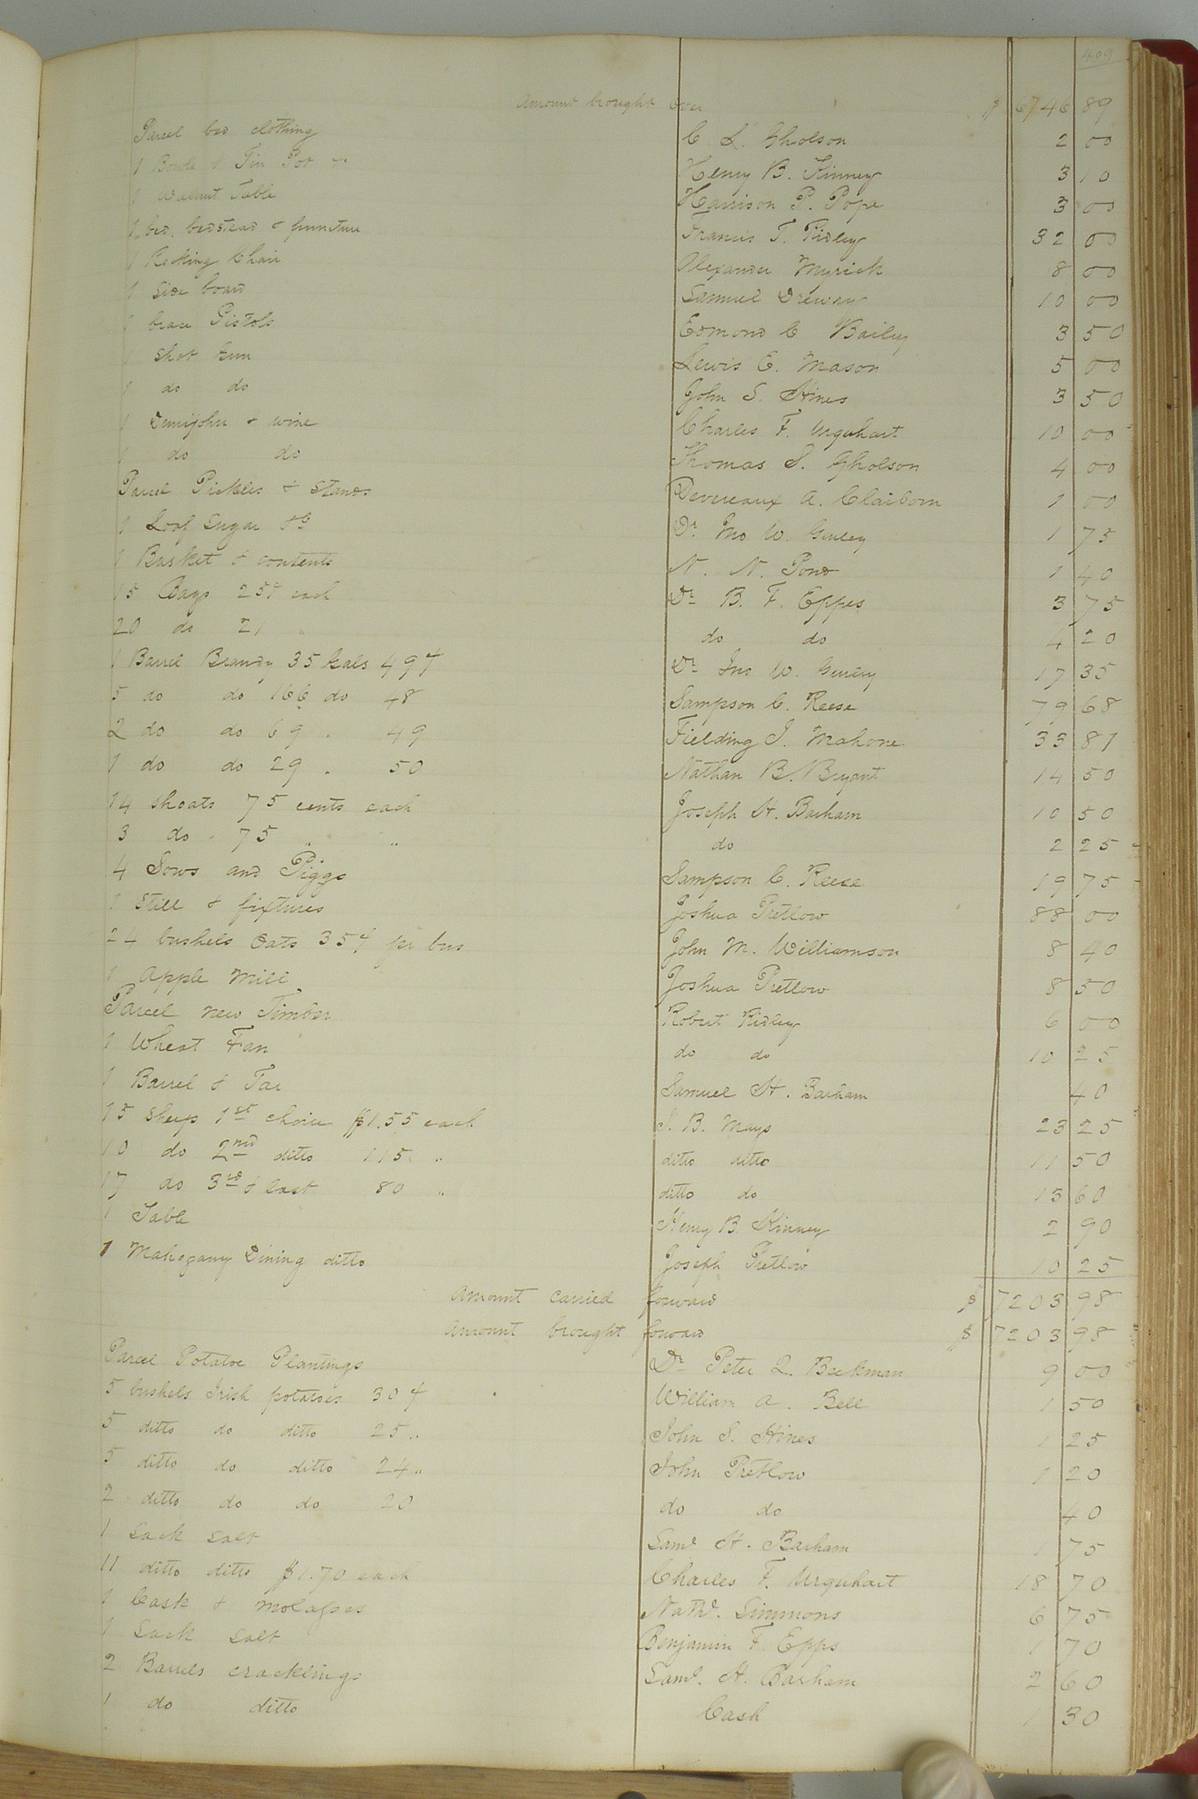 409
Amount brought over $ 6746 89
Parcel bed clothing C. L. Gholson 2 00
1 Bowle & Tin Pot Henry B. Kinney 3 10
1 Walnut Table Harrison P. Pope 3 00
1 bed, bedstead & furniture Francis T. Ridley 32 00
1 Rocking Chair Alexander Myrick 8 00
1 Side board Samuel Drewry 10 00
1 brace Pistols Edmond C Bailey 3 50
1 Shot Gun Lewis E. Mason 5 00
1 do do John S. Hines 3 50
1 Demijohn & wine Charles F. Urquhart 10 00
1 do do Thomas S. Gholson 4 00
Parcel Pickles & Stands Devereaux A. Claiborn 1 00
1 Loaf Sugar Dr. Jno W. Gurley 1 75
1 Basket & contents N. N. Pond 1 40
15 Bags 25¢ each Dr. B. F. Eppes 3 75
20 do 21 " do do 4 20
1 Barrel Brandy 35 Gals 49¢ Dr. Jno W. Gurley 17 35
5 do do 166 do 48 Sampson C. Reese 79 68
2 do do 69 " 49 Fielding J. Mahone 33 81
1 do do 29 " 50 Nathan B. Bryant 14 50
14 Shoats 75 cents each Joseph H. Barham 10 50
3 do 75 " " do 2 25
4 Sows and Piggs Sampson C. Reese 19 75
1 Still & fixtures Joshua Pretlow 88 00
24 bushels Oats 35¢ per bus John M. Williamson 8 40
1 Apple Mill Joshua Pretlow 8 50
Parcel new Timber Robert Ridley 6 00
1 Wheat Fan do do 10 25
1 Barrel & Tar Samuel H. Barham 40
15 Sheep 1st choice $1.55 each J. B. Mays 23 25
10 do 2nd ditto 115 " ditto ditto 11 50
17 do 3rd & last 80 " ditto do 13 60
1 Table Henry B. Kinney 2 90
1 Mahogany Dining ditto Joseph Pretlow 10 25
Amount carried forward $ 7203 98
Amount brought forward $ 7203 98
Parcel Potatoe Plantings Dr. Peter 2. Beckman 9 00
5 bushels Irish potatoes 30¢ William A. Bell 1 50
5 ditto do ditto 25 " John S. Hines 1 25
5 ditto do ditto 24 " John Pretlow 1 20
2 ditto do do 20 do do 40
1 Sack Salt Saml. H. Barham 1 75
11 ditto ditto $1.70 each Charles F. Urquhart 18 70
1 Cask & Molasses Nathl. Simmons 6 75
1 Sack Salt Benjamin F. Epps 1 70
2 Barrels cracklings Saml. H. Barham 2 60
1 do ditto Cash 1 30